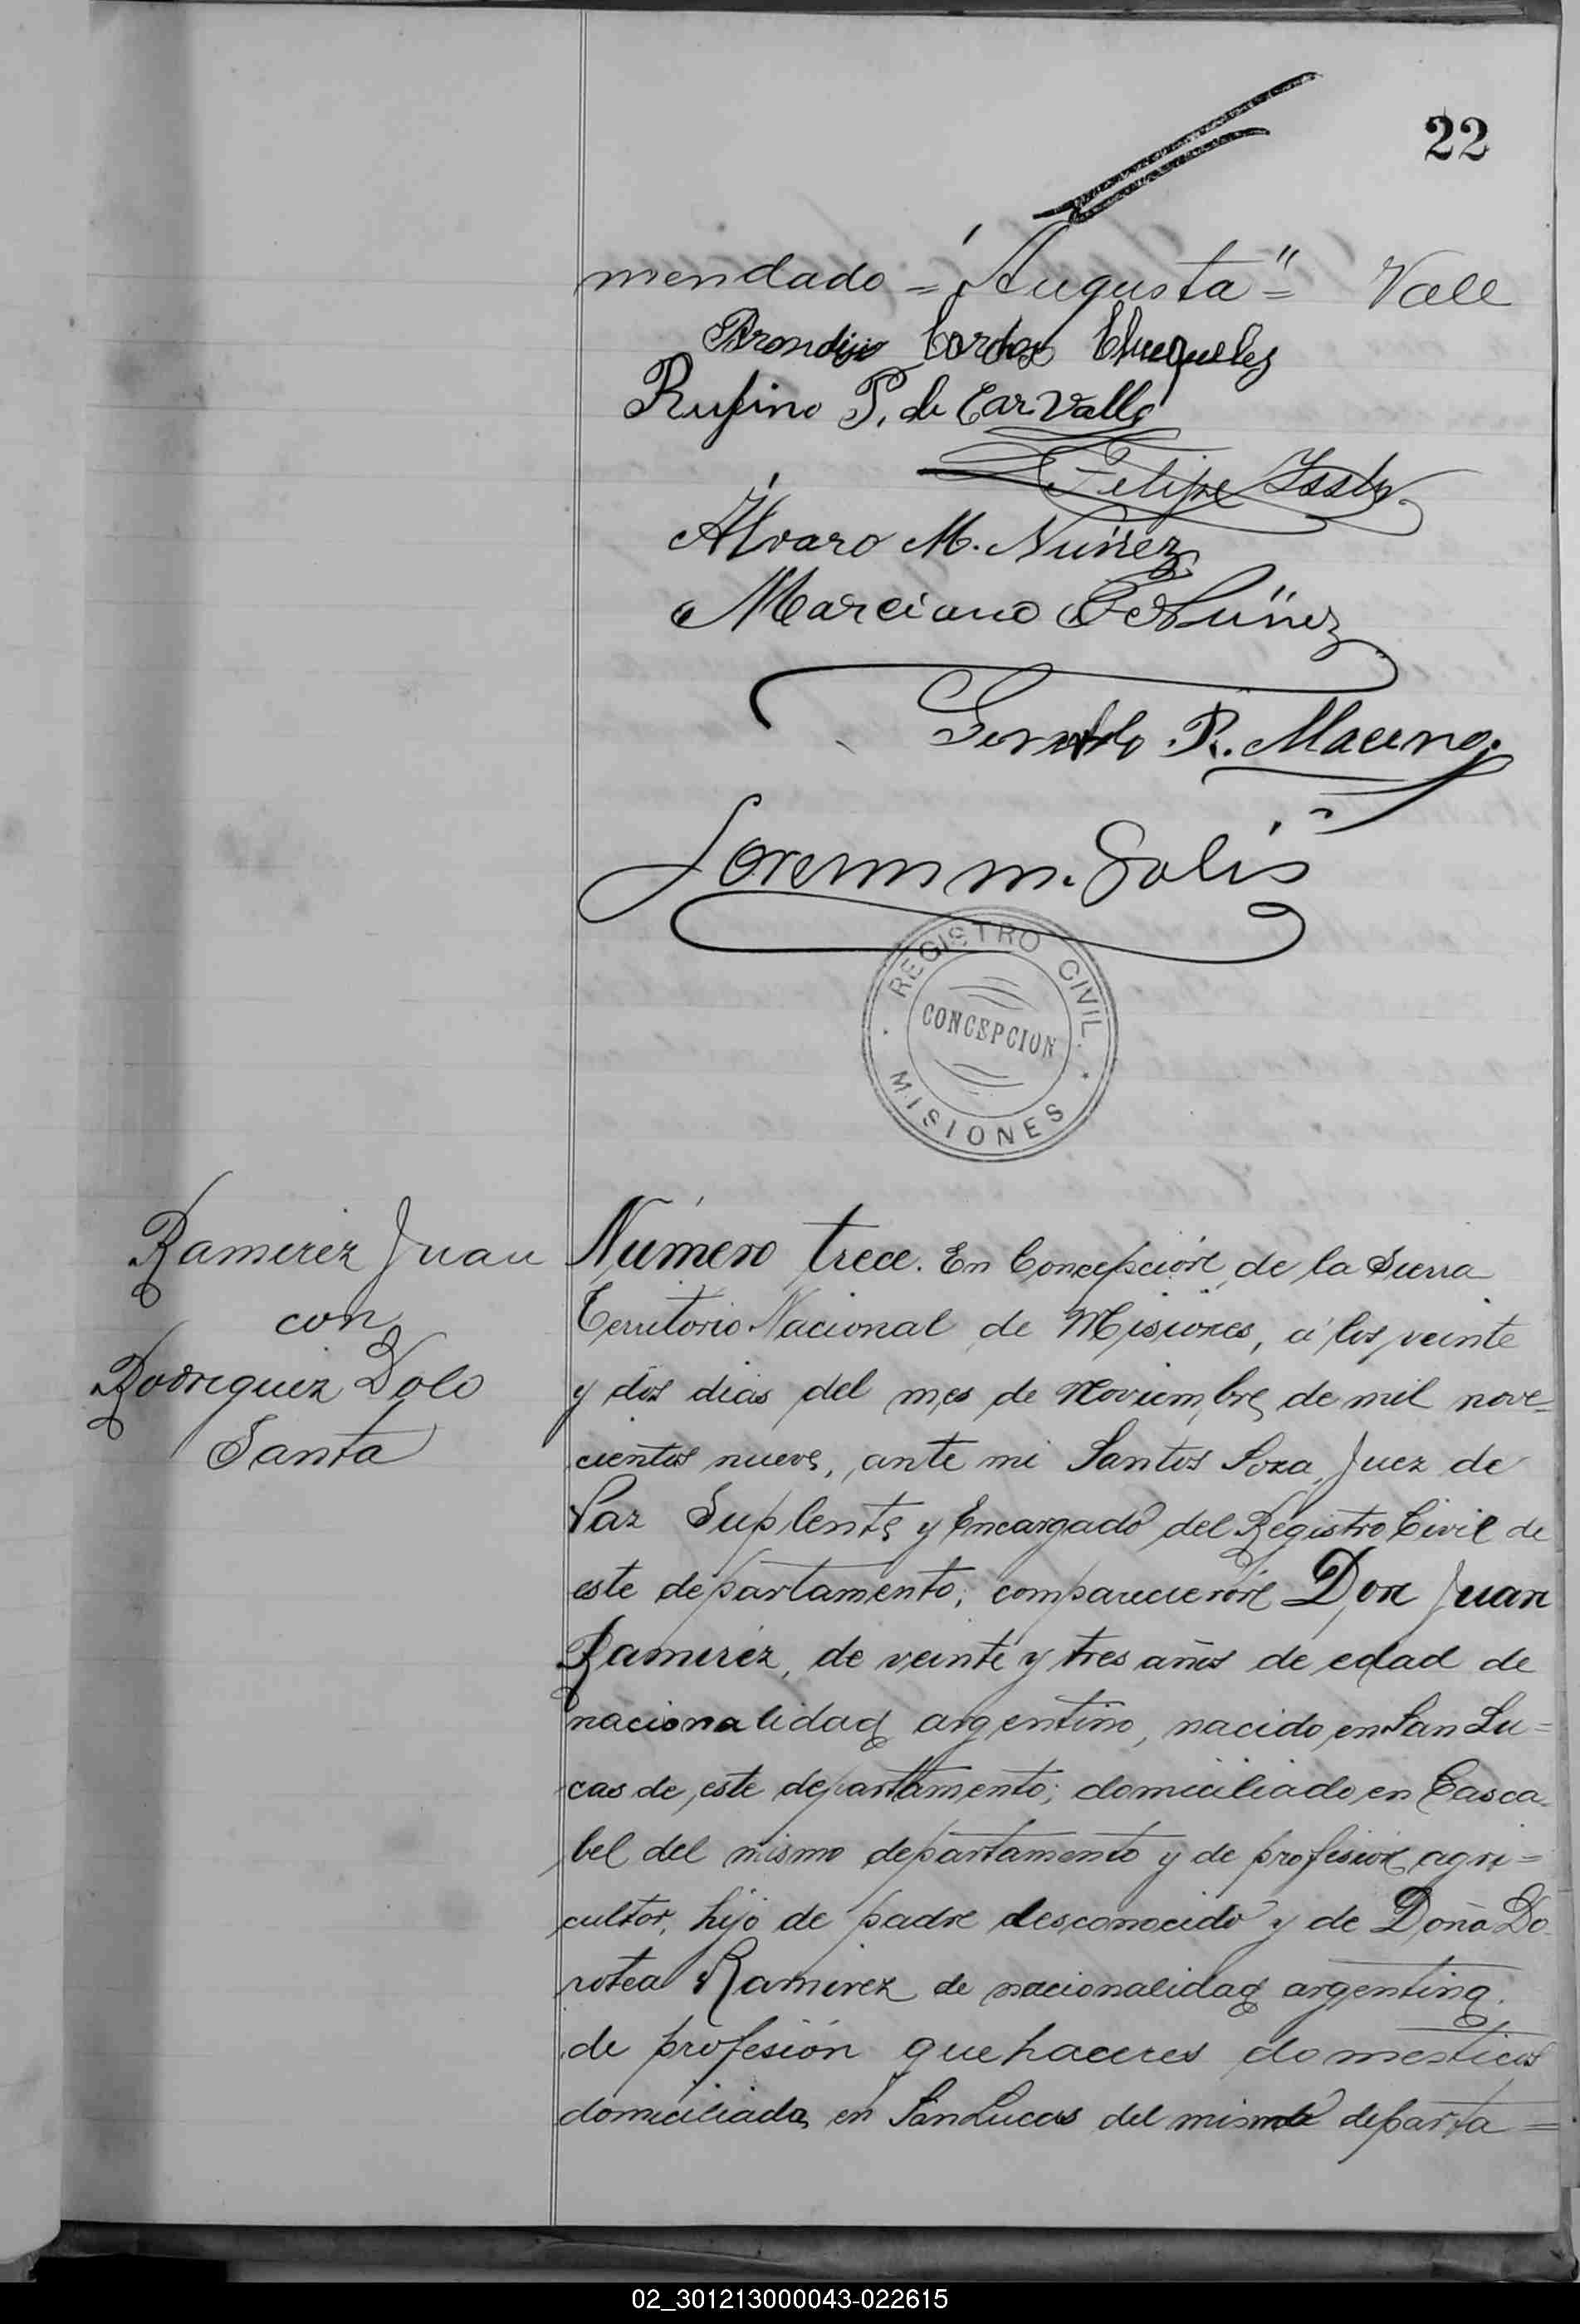 22
mendado = "Augusta" = Vale
Rufino P. de Carvallo
Felipe
Álvaro M. Núñez
Marciano Núñez
R.
M. Solis
REGISTRO CIVIL
CONCEPCION
MISIONES
Ramirez Juan
con
Rodriguez Dolo
Santa
Número trece. En Concepción de la Sierra
Territorio Nacional de Misiones, á los veinte
y dos dias del mes de Noviembre de mil nove=
cientos nueve, ante mi Santos Soza, Juez de
Paz Suplente y Encargado del Registro Civil de
este departamento; comparecieron Don Juan
Ramirez, de veinte y tres años de edad de
nacionalidad argentino, nacido en San Lu=
cas de este departamento; domiciliado en Casca-
bel del mismo departamento y de profesion agri=
cultor, hijo de padre desconocido y de Doña Do-
rotea Ramirez de nacionalidad argentina.
de profesión quehaceres domesticos
domiciliada en San Lucas del mismo departa=
02_301213000043-022615